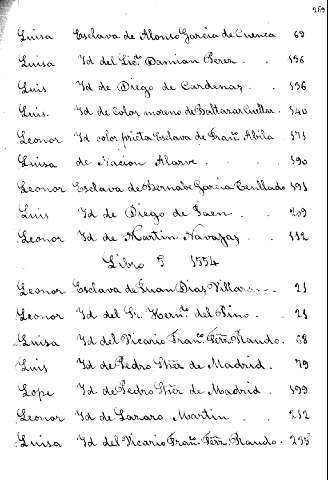 269
Luisa Esclava de Alonso Garcia de Cuenca 69
Luisa Yd del Lic.do Damian Perez . . 136
Luis Yd de Diego de Cardenas . . 136
Luis. Yd de color moreno de Baltasar Cuellar . 140
Leonor Yd color prieta Esclava de Fran.co Abila 171
Luisa de Nacion Alarve . . 190
Leonor Esclava de Bernabe Garcia Tenllado 191
Luis Yd de Diego de Jaen . . 209
Leonor Yd de Martin Navajas . . 112
Libro 5 1554
Leonor Esclava de Juan Diaz Villaran . . 21
Leonor Yd del Sr. Hern.do del Pino . . 21
Luisa Yd del Vicario Fran.co Fern. Prando . 68
Luis Yd de Pedro Ruiz de Madrid . 79
Lope Yd de Pedro Ruiz de Madrid . 199
Leonor Yd de Lazaro Martin . . 212
Luisa Yd del Vicario Fran.co Fern. Prando . 235